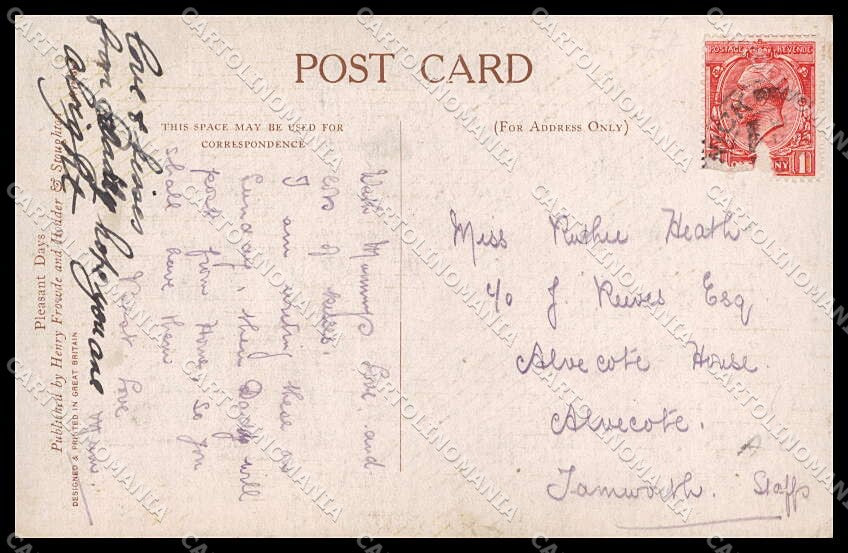 POST CARD
THIS SPACE MAY BE USED FOR
CORRESPONDENCE
(FOR ADDRESS ONLY)
POSTAGE REVENUE
1
With Mummys Love, and
lots of kisses.
I am writing these on
Sunday, then Daddy will
post from Home, so you
shall have them
Love
Mum.
love & kisses
from Daddy hope you are
alright
Miss Ruthie Heath
c/o J. Reeves Esq
Alvecote House.
Alvecote.
Tamworth. Staffs
Pleasant Days.
Published by Henry Frowde and Hodder & Stoughton
DESIGNED & PRINTED IN GREAT BRITAIN
CARTOLINOMANIA